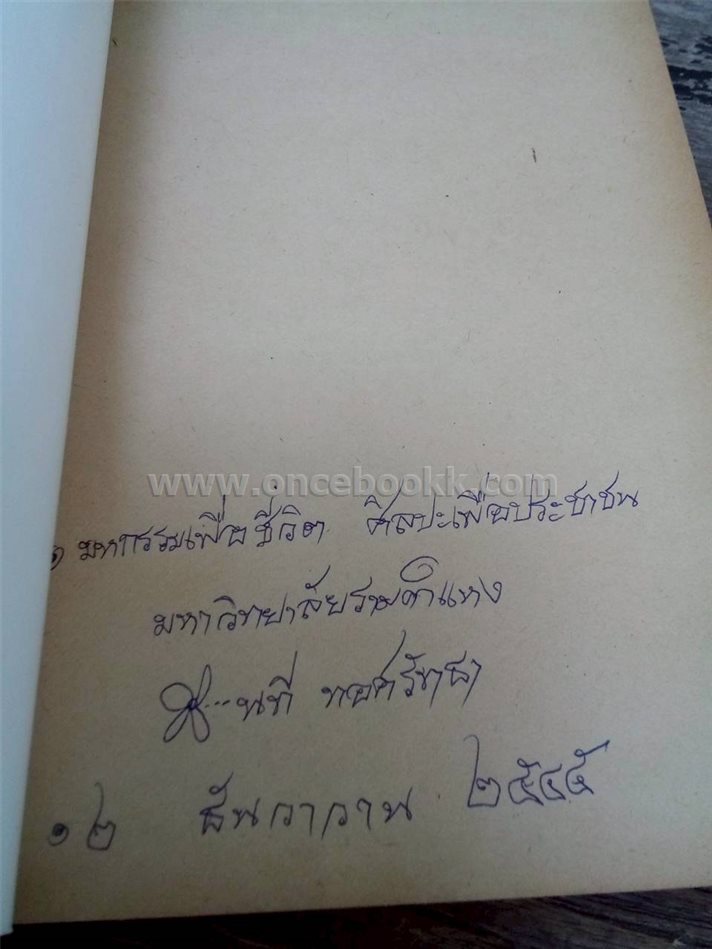 www.oncebookk.com
มหกรรมเพื่อชีวิต ศิลปะเพื่อประชาชน
มหาวิทยาลัยรามคำแหง
นที
๑๒ ธันวาคม ๒๕๔๕